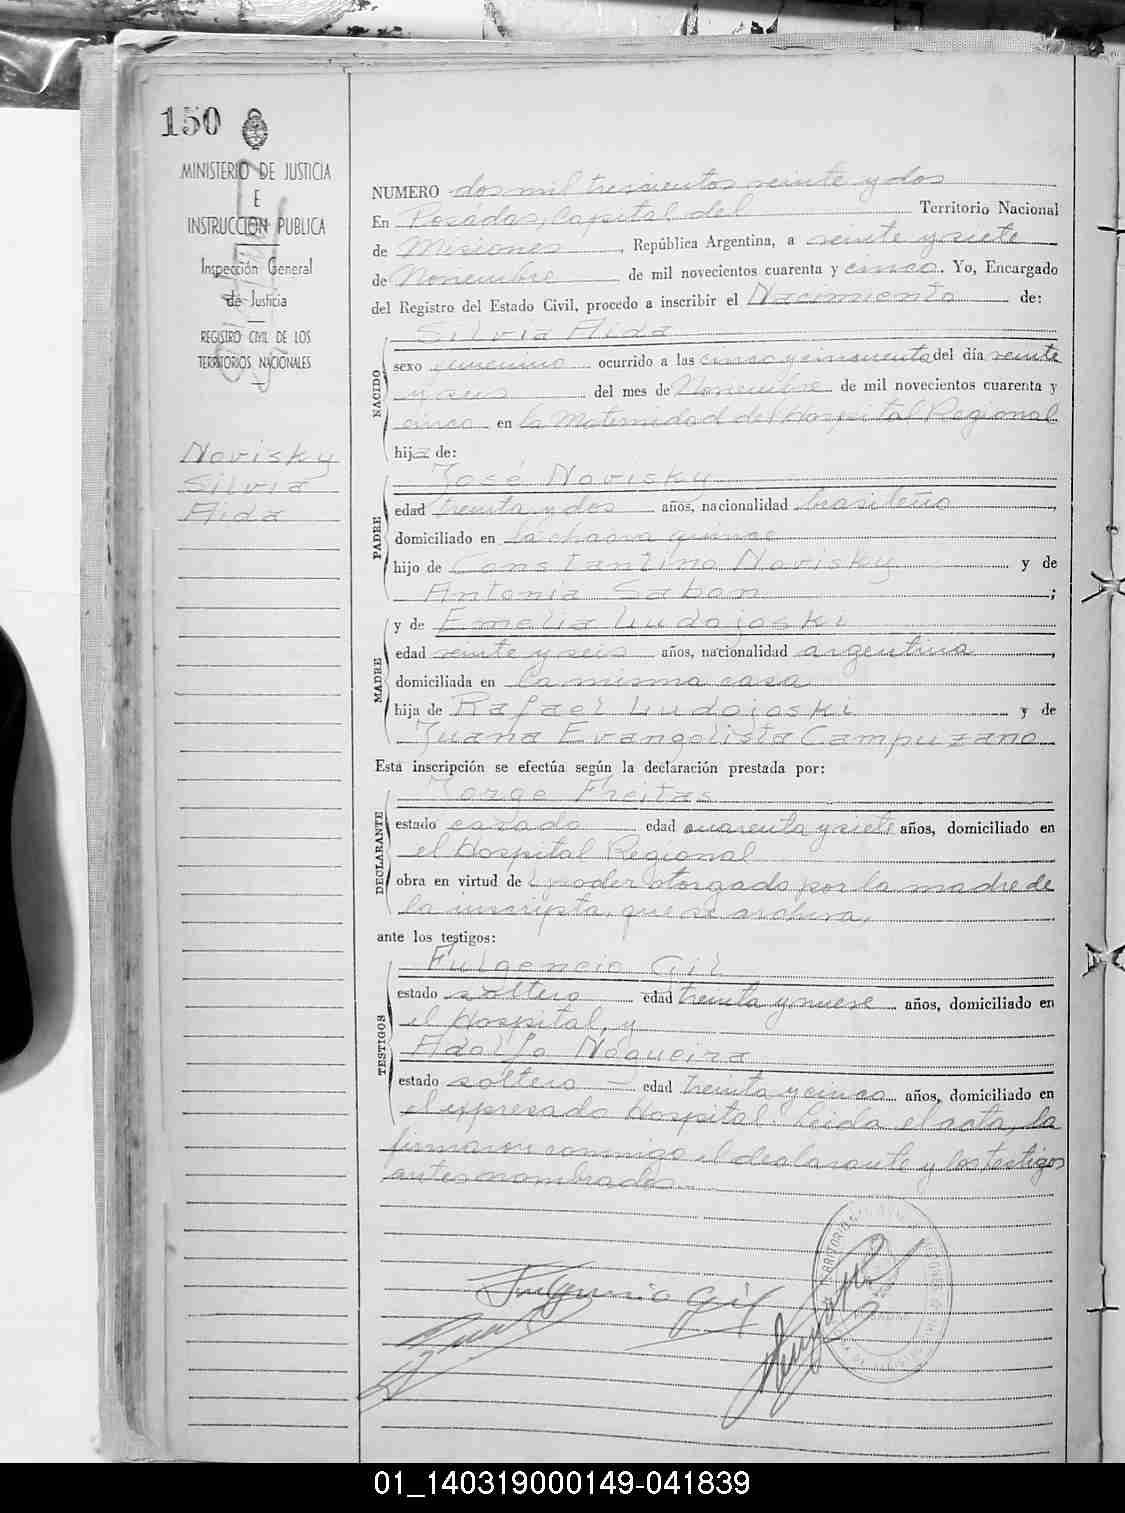 150
MINISTERIO DE JUSTICIA
E
INSTRUCCION PUBLICA
Inspección General
de Justicia
REGISTRO CIVIL DE LOS
TERRITORIOS NACIONALES
Novisky
Silvia
Aida
NUMERO dos mil trescientos veinte y dos
En Posadas, Capital del Territorio Nacional
de Misiones, República Argentina, a veinte y siete
de Noviembre de mil novecientos cuarenta y cinco. Yo, Encargado
del Registro del Estado Civil, procedo a inscribir el Nacimiento de:
NACIDO
Silvia Aida
sexo femenino ocurrido a las cinco y cincuenta del día veinte
y seis del mes de Noviembre de mil novecientos cuarenta y
cinco en la Maternidad del Hospital Regional
hija de:
PADRE
José Novisky
edad treinta y dos años, nacionalidad brasileño,
domiciliado en la chacra quince
hijo de Constantino Novisky y de
Antonia Sabon;
MADRE
y de Emelia Ludojoski
edad veinte y seis años, nacionalidad argentina,
domiciliada en la misma casa
hija de Rafael Ludojoski y de
Juana Evangelista Campuzano
Esta inscripción se efectúa según la declaración prestada por:
DECLARANTE
Jorge Freitas
estado casado edad cuarenta y siete años, domiciliado en
el Hospital Regional
obra en virtud de poder otorgado por la madre de
la inscripta, que se archiva,
ante los testigos:
TESTIGOS
Fulgencio Gil
estado soltero edad treinta y nueve años, domiciliado en
el Hospital, y
Adolfo Nogueira
estado soltero edad treinta y cinco años, domiciliado en
el expresado Hospital. Leida el acta, la
firmaron conmigo el declarante y los testigos
antes nombrados.-
Fulgencio Gil
01_140319000149-041839